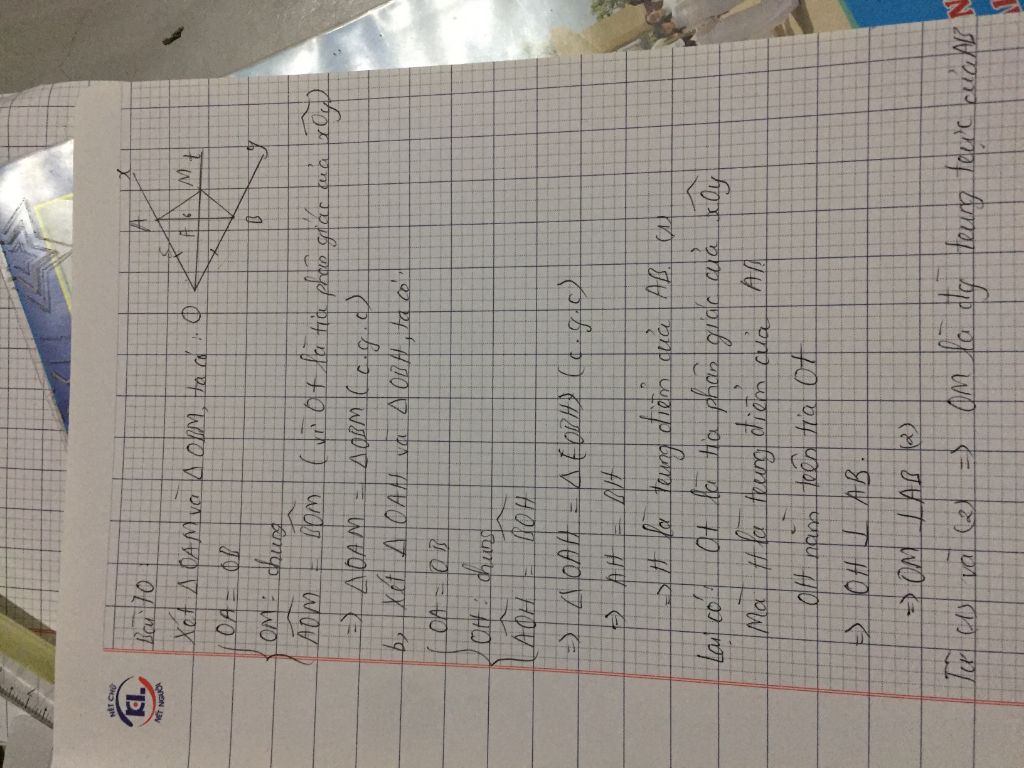 Bài 10:
Xét Δ OAM và Δ OBM, ta có:
OA = OB
OM: chung
AOM = BOM (vì Ot là tia phân giác của xOy)
=> Δ OAM = Δ OBM (c.g.c)
b, Xét Δ OAH và Δ OBH, ta có:
OA = OB
OH: chung
AOH = BOH
=> Δ OAH = Δ (OBH) (c.g.c)
=> AH = BH
=> H là trung điểm của AB (1)
Lại có: Ot là tia phân giác của xOy
Mà H là trung điểm của AB
OH nằm trên tia Ot
=> OH ⊥ AB.
=> OM ⊥ AB (2)
Từ (1) và (2) => OM là đg trung trực của AB
O
A
x
H
M
t
B
y
NÉT CHỮ
KL
NẾT NGƯỜI